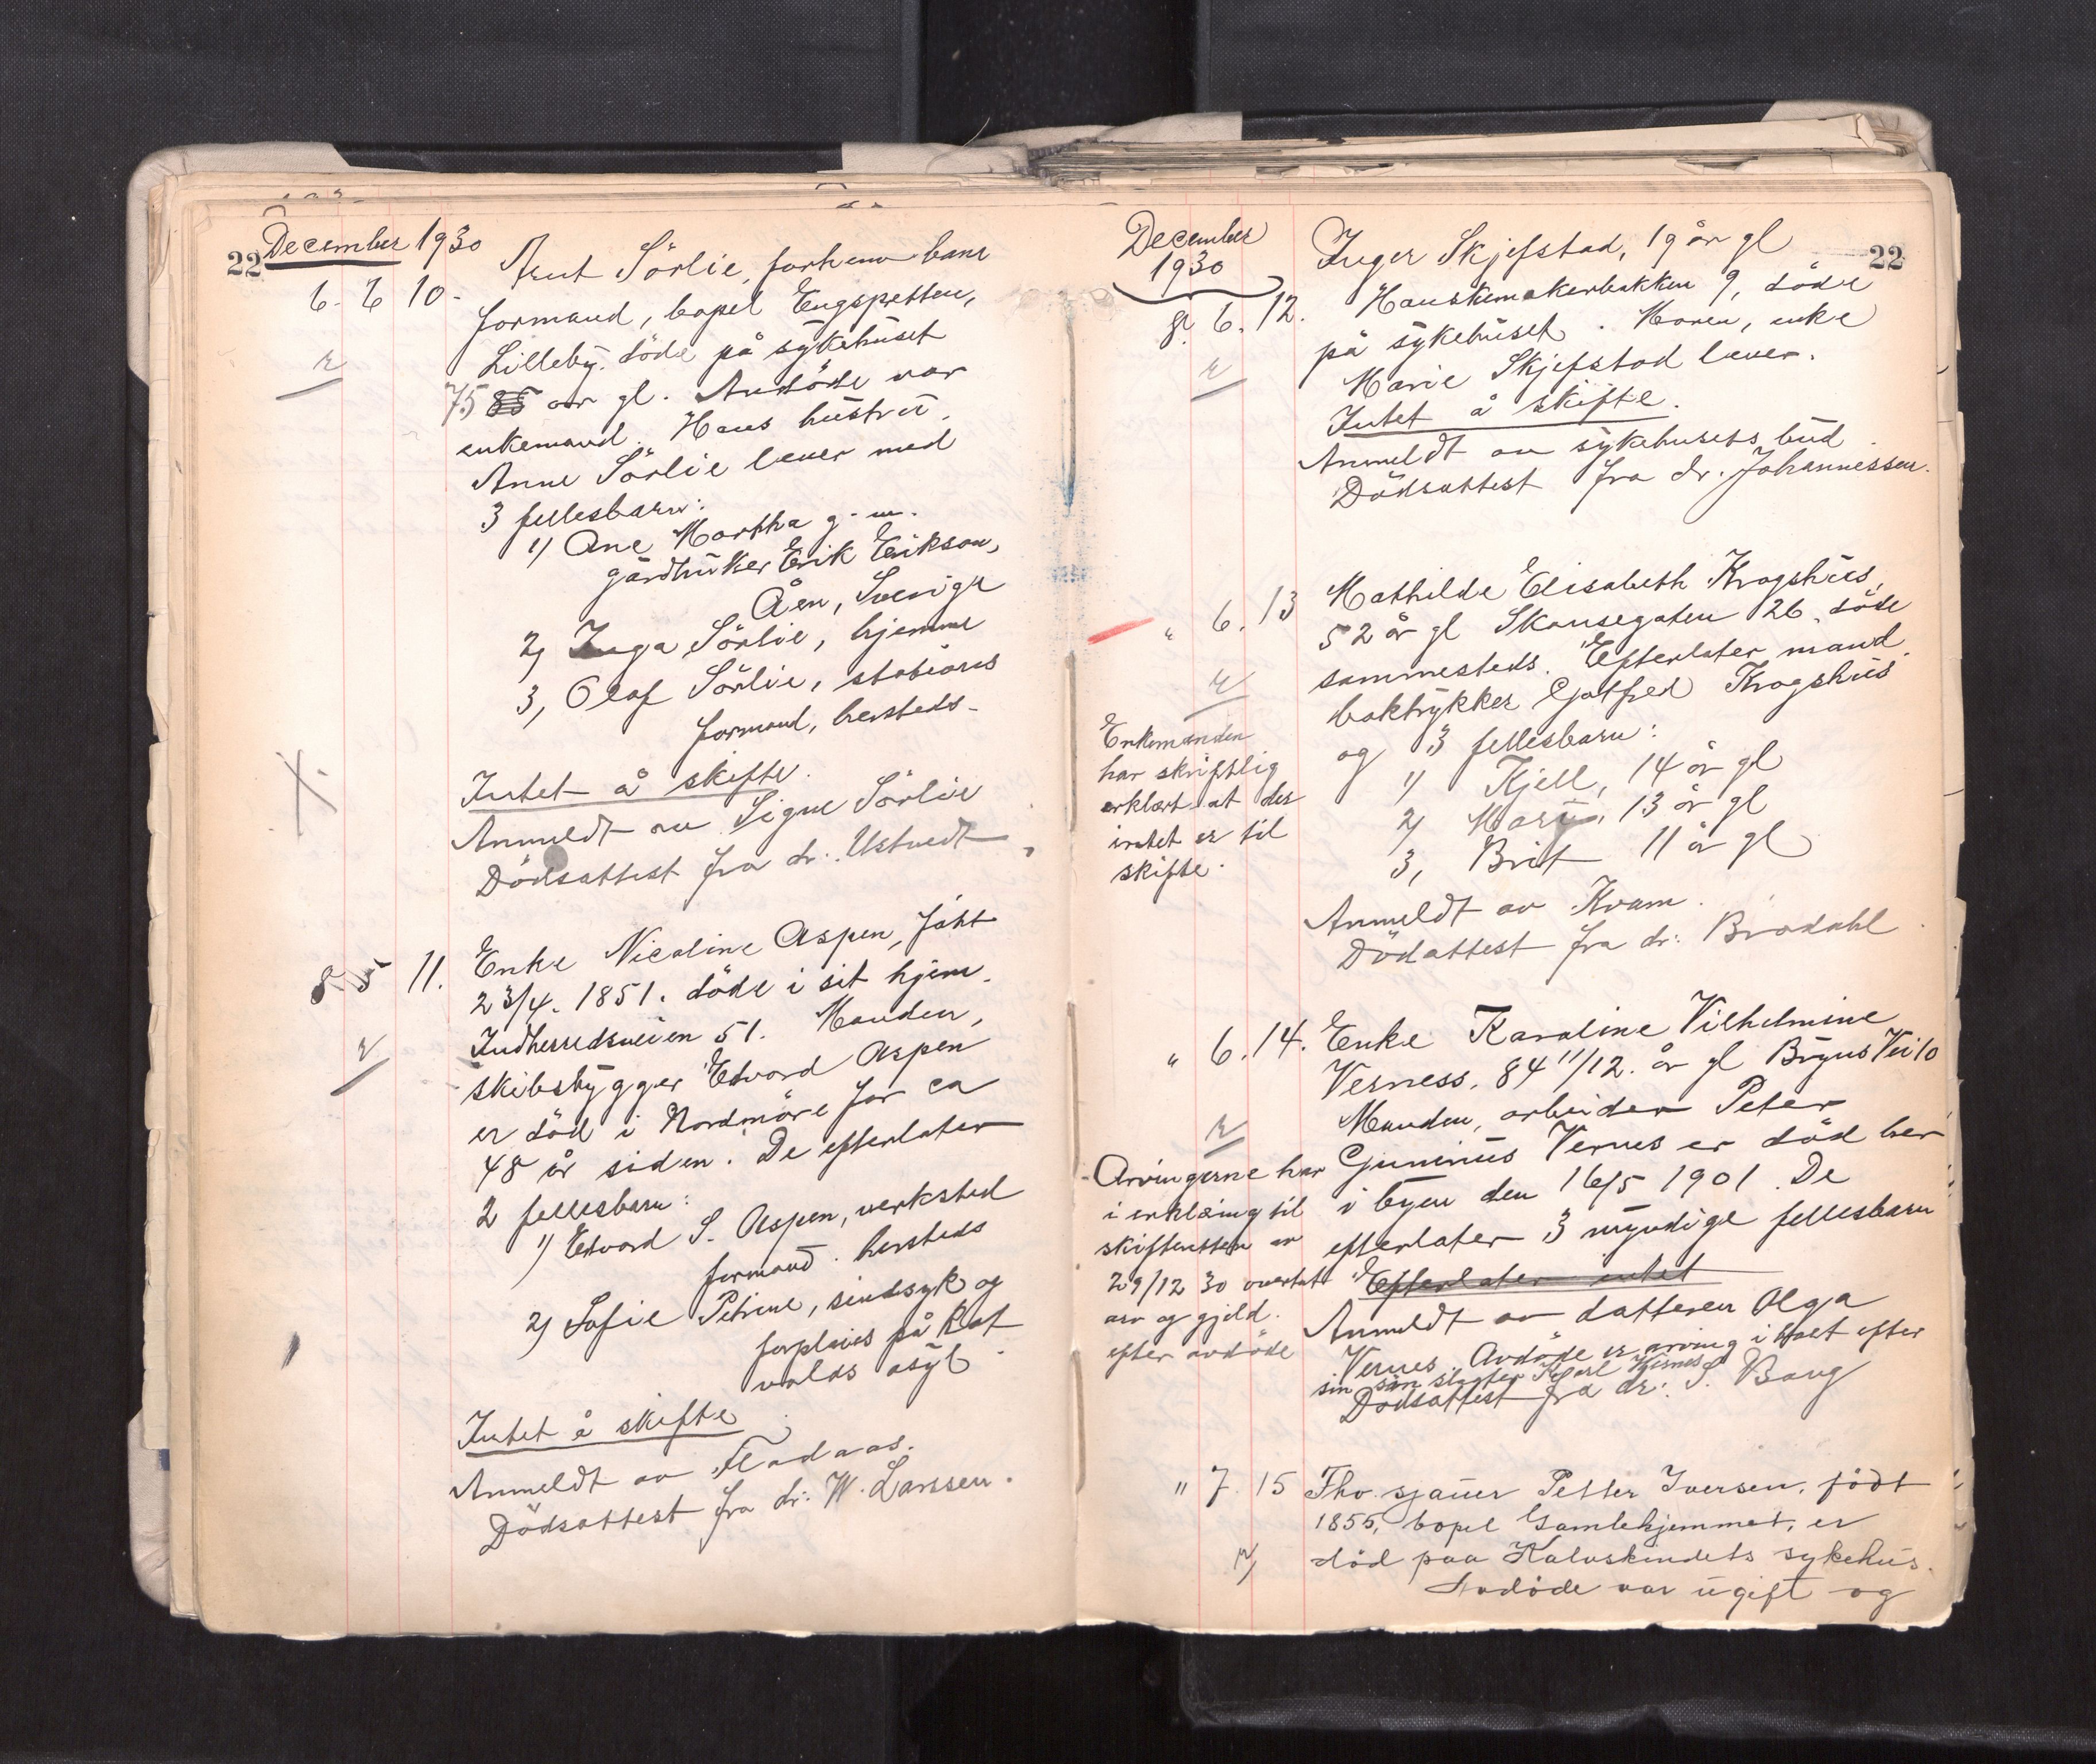 22 December 1930
6. 6 10. Arnt Sörlie, forhenv bane
formand, bopel Engspretten,
Lilleby. döde på sykehuset
75 år gl. Avdöde var
enkemand. Hans hustru.
Anne Sörlie lever med
3 fellesbarn:
1) Ane Martha g. m.
gårdbruker Erik Erikson,
Åen, Sverige
2) Inga Sörlie, hjemme
3, Olaf Sörlie, stations
formand, hersteds.
Intet å skifte.
Anmeldt av Signe Sörlie
Dödsattest fra dr. Ustvedt
8 5 11. Enke Nicoline Aspen, födt
23/4. 1851. döde i sit hjem.
Indherredsveien 51. Manden,
skibsbygger Edvard Aspen
er död i Nordmöre for ca
48 år siden. De efterlater
2 fellesbarn:
1) Edvard S. Aspen, verksted
formand. hersteds
2) Sofie Petrine, sindssyk og
forpleies på Rot
volds asyl.
Intet å skifte.
Anmeldt av Fladaas.
Dödsattest fra dr: W. Larssen.
December
1930
22
8. 6. 12. Inger Skjefstad, 19 år gl
Hanskemakerbakken 9, döde
på sykehuset. Moren, enke
Marie Skjefstad lever.
Intet å skifte.
Anmeldt av sykehusets bud.
Dödsattest fra dr. Johannessen.
" 6. 13 Mathilde Elisabeth Krogshus,
52 år gl Skansegaten 26, döde
sammesteds. Efterlater mand.
boktrykker Gotfred Krogshus
og 3 fellesbarn:
1) Kjell, 14 år gl
2) Mary, 13 år gl
3, Brit 11 år gl
Anmeldt av Kvam.
Dödattest fra dr: Brodahl.
Enkemanden
har skriftlig
erklært at der
intet er til
skifte.
" 6. 14. Enke Karoline Vilhelmine
Verness, 84 11/12. år gl Brynsvei 10
Manden, arbeider Peter
Guninus Vernes er död her
i byen den 16/5 1901. De
efterlater 3 myndige fellesbarn
Efterlater intet
Anmeldt av datteren Olga
Vernes. Avdöde er arving i boet efter
sin sön slagter Karl Vernes
Dödsattest fra dr: S. Bang
Arvingerne har
i erklæring til
skifteretten av
29/12 30 overtat
arv og gjeld.
efter avdöde
" 7. 15 Fhv. sjauer Petter Iversen, född
1855, bopel Gamlehjemmet, er
död paa Kalvskindets sykehus.
Avdöde var ugift og